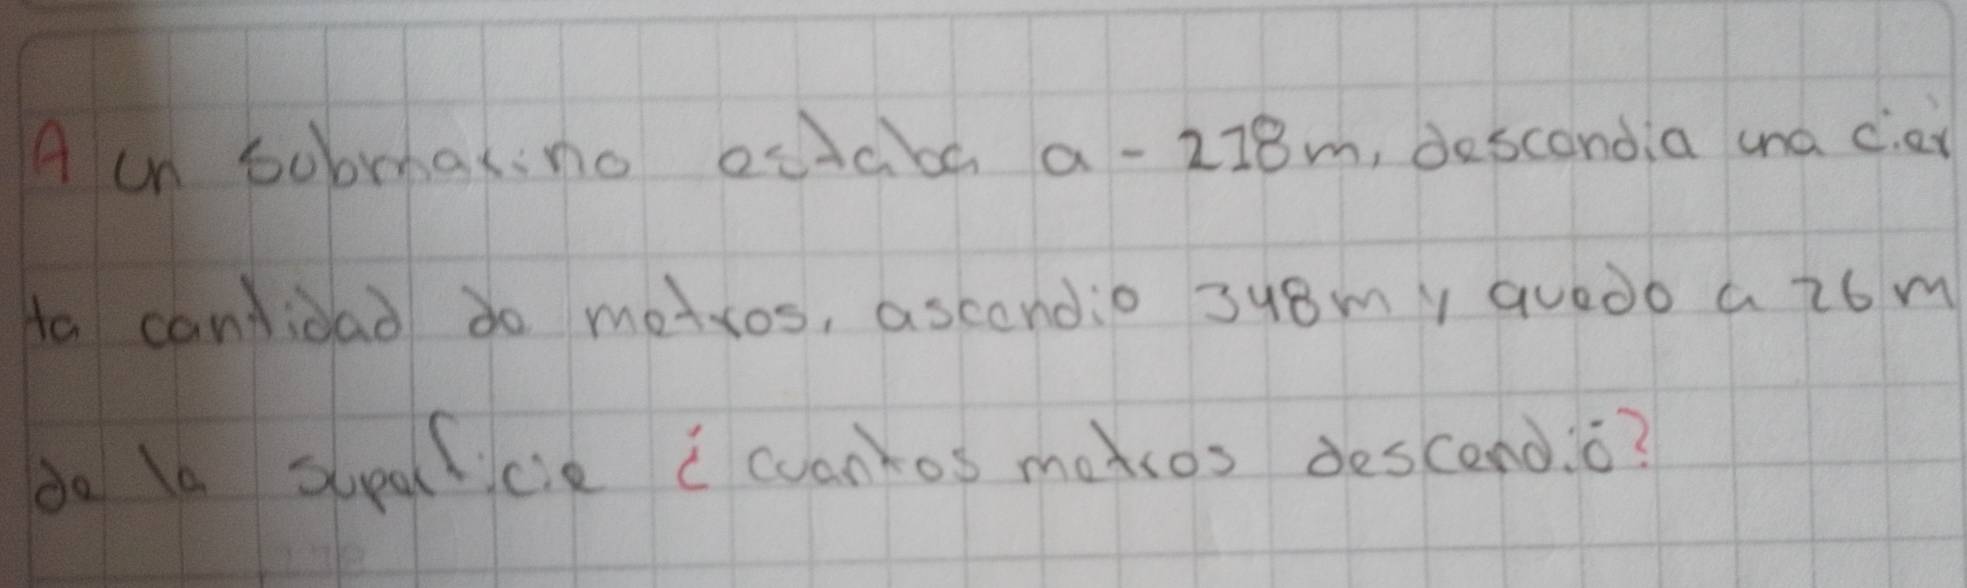 A un submarino estaba a - 218m, descendia una cier
ta cantidad de metros, ascendio 348m y quedo a 26m
de la superficie ¿ cuantos metros descendió?